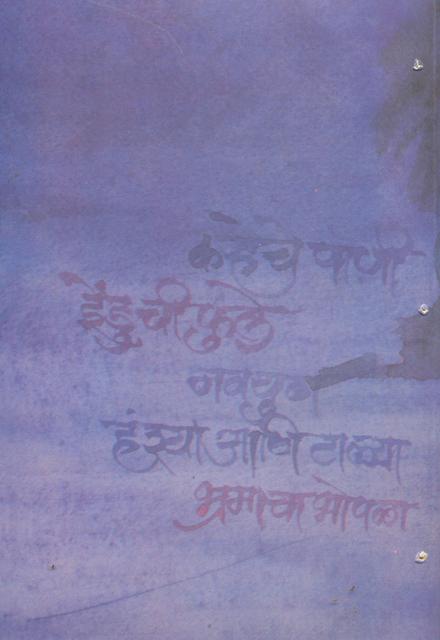 कऱ्हेचे पाणी
झेंडूची फुले
नवयुग
हंशा आणि टाळ्या
भ्रमाचा भोपळा